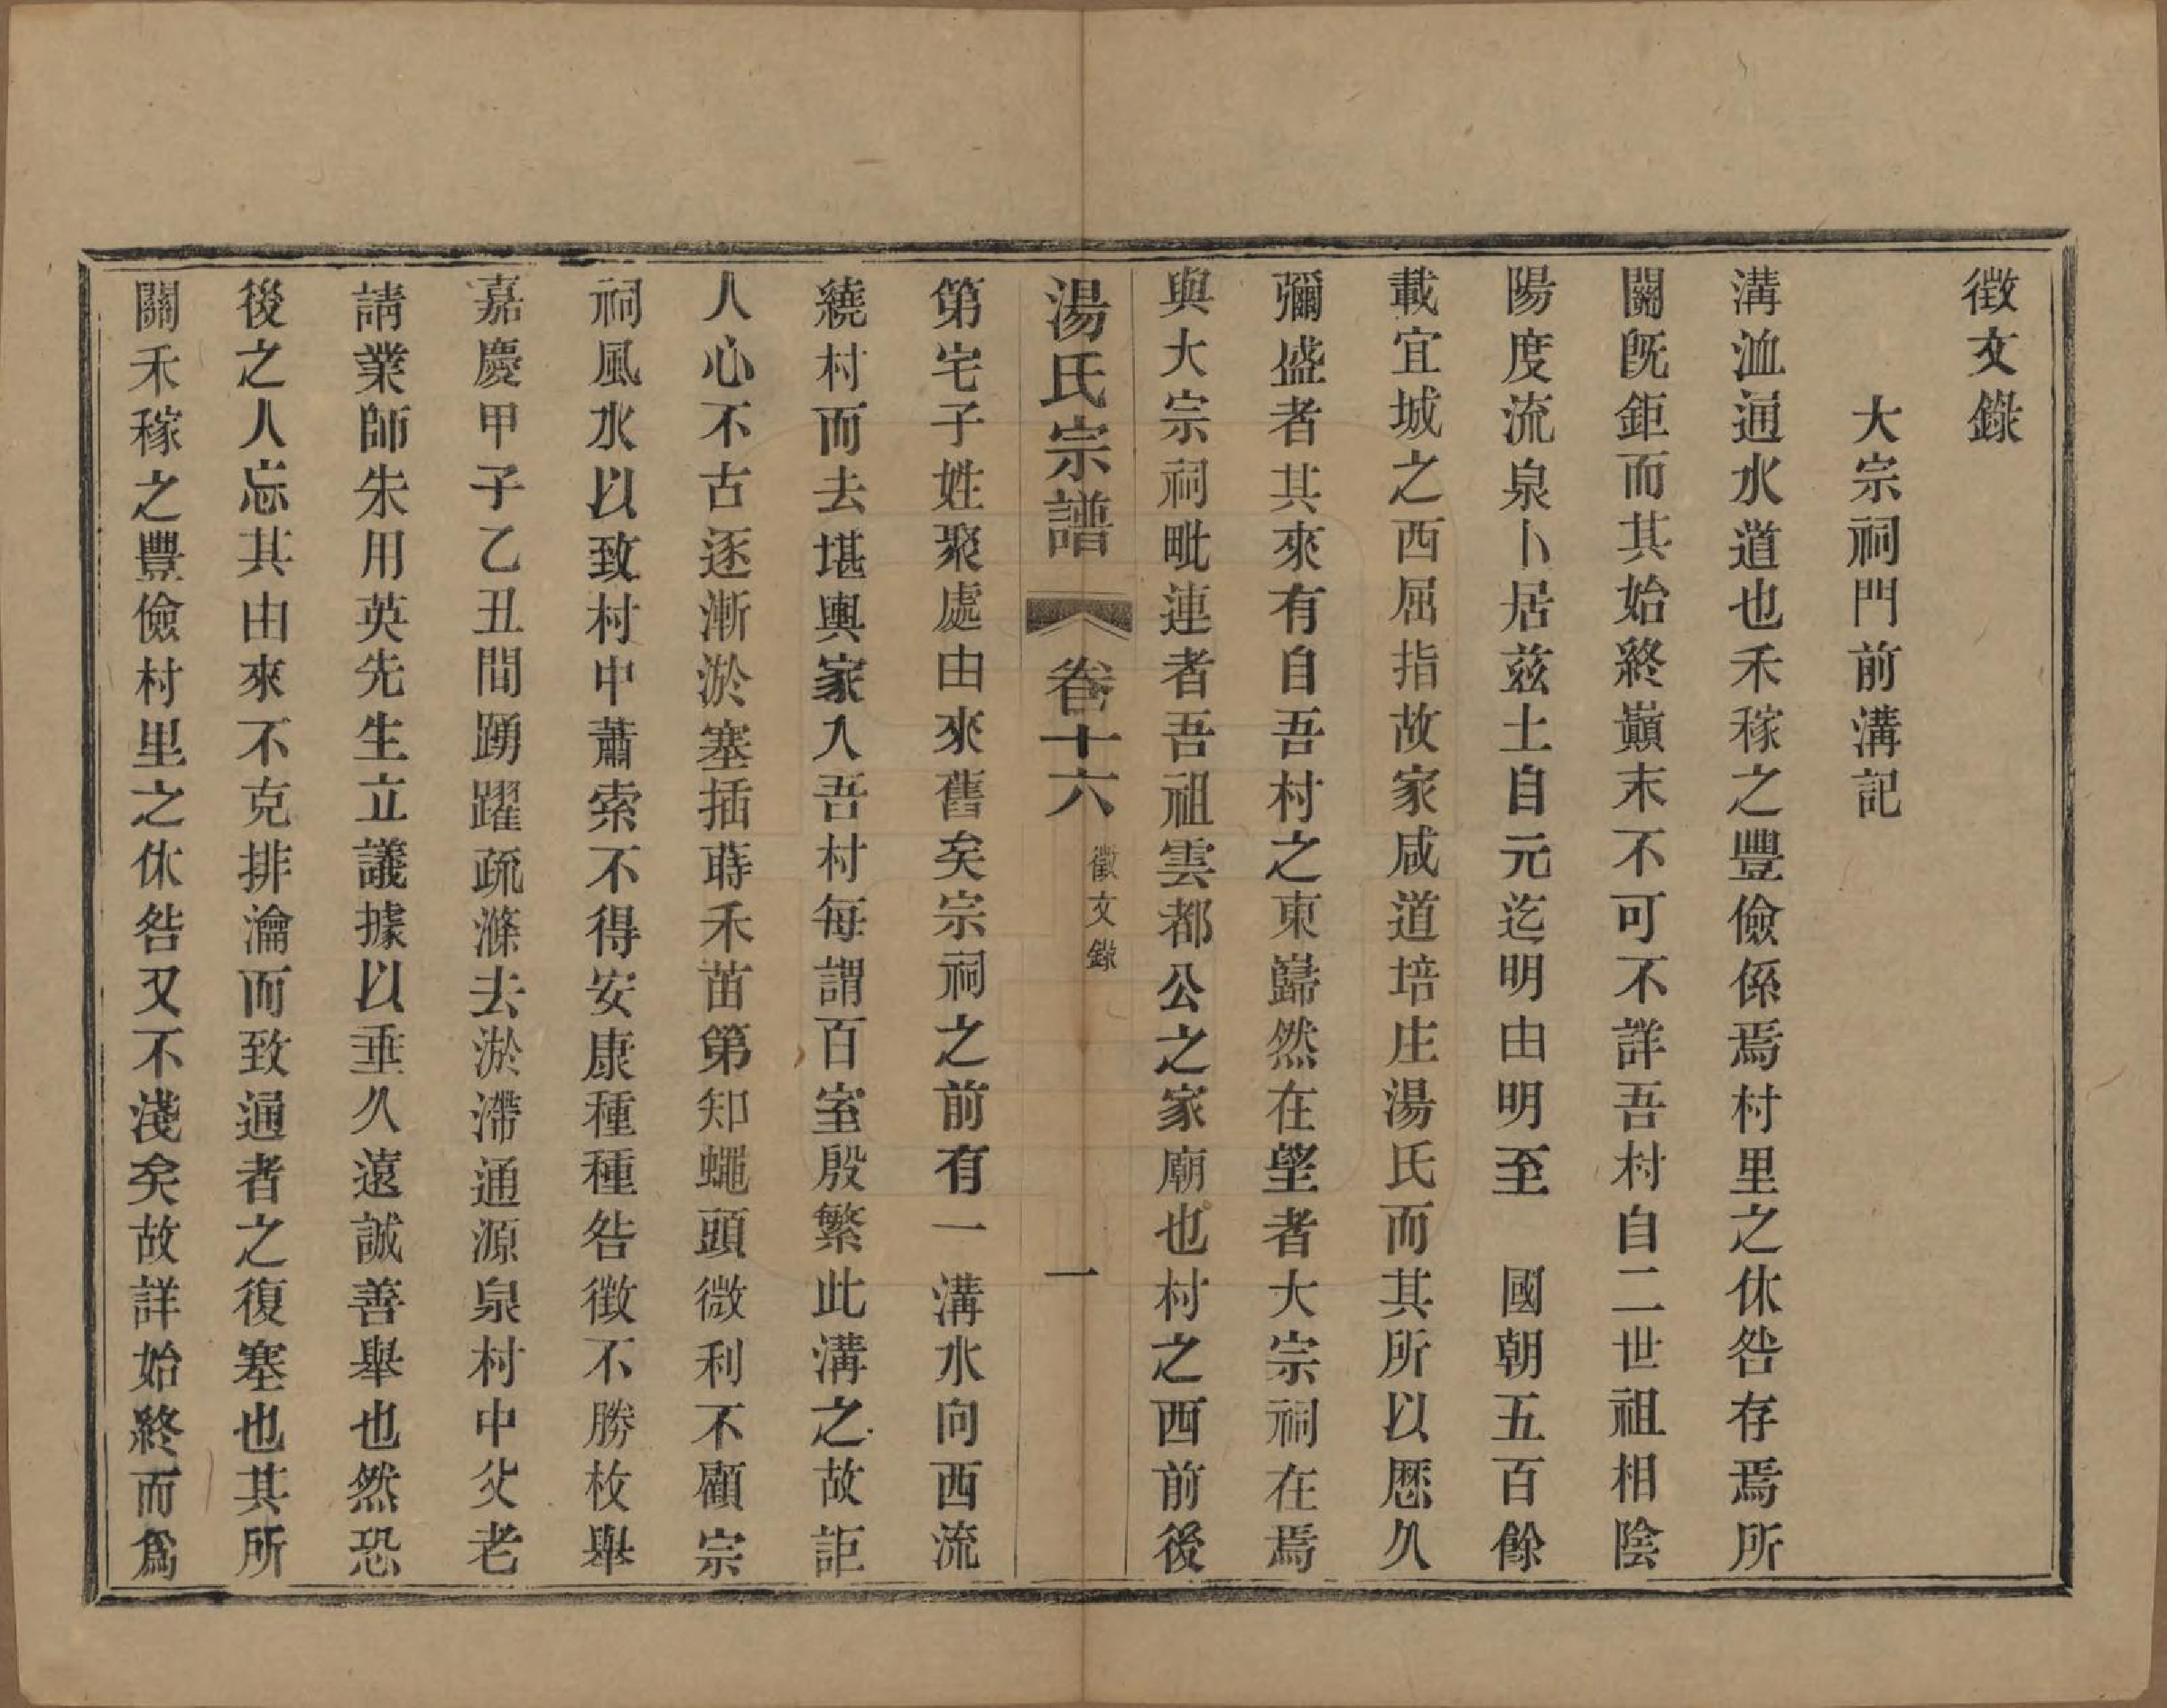 徵文錄
大宗祠門前溝記
溝洫通水道也禾稼之豐儉係焉村里之休咎存焉所
關旣鉅而其始終巔末不可不詳吾村自二世祖相陰
陽度流泉卜居兹土自元迄明由明至 國朝五百餘
載宜城之西屈指故家咸道培庄湯氏而其所以歷久
彌盛者其來有自吾村之東巋然在望者大宗祠在焉
與大宗祠毗連者吾祖雲都公之家廟也村之西前後
湯氏宗譜 卷十六 徵文錄 一
第宅子姓聚處由來舊矣宗祠之前有一溝水向西流
繞村而去堪輿家入吾村每謂百室殷繁此溝之故詎
人心不古逐漸淤塞插蒔禾苗第知蠅頭微利不顧宗
祠風水以致村中蕭索不得安康種種咎徵不勝枚舉
嘉慶甲子乙丑間踴躍疏滌去淤滯通源泉村中父老
請業師朱用英先生立議據以垂久遠誠善舉也然恐
後之人忘其由來不克排瀹而致通者之復塞也其所
關禾稼之豐儉村里之休咎又不淺矣故詳始終而爲